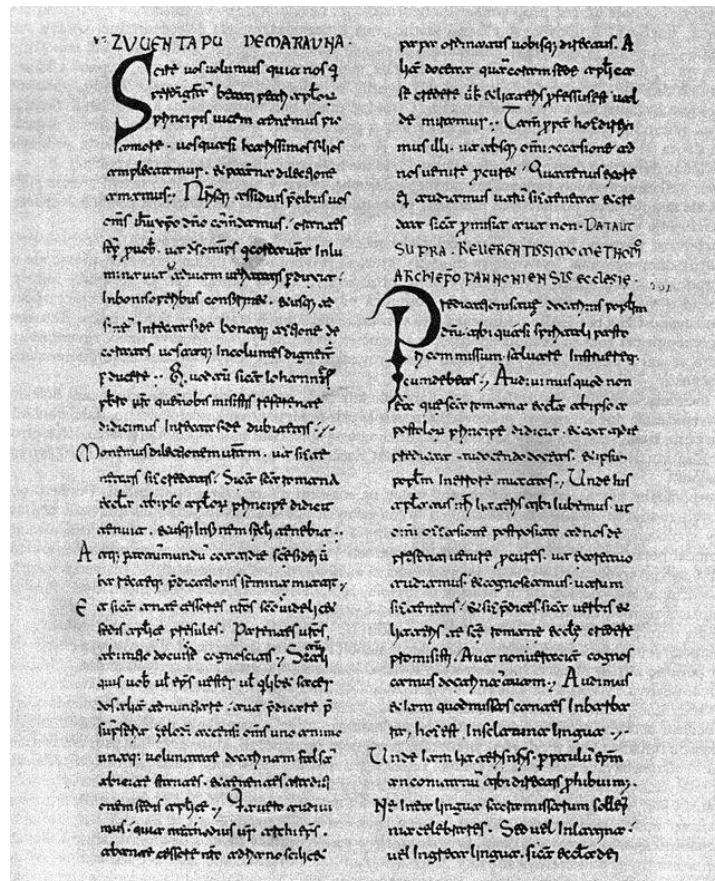 ZVUENTAPU DEMARAUNA.
Scire uos uolumus quia nos q̄
per dei gr̄am beati petri ap̄lor
principis uicem tenemus pio
amore. uos quasi karissimos filios
amplectamur. et paterna dilectione
amamus. assiduis p̄cibus uos
om̄s dn̄o com̄damus. orantes
sēp p uob. ut ds om̄ps q corda ur̄a inlu
minauit ad uiam ueritatis pducat.
In bonis operibus confirmet. et usq; ad
fine In recta fide bonaq; actione de
coratos uos atq; Incolumes dignet
pducere. Et uodarū sicut Iohanne
pb̄ro ur̄o quē nobis misistis referente
didicimus In recta fide dubitetis.
Monemus dilectionem ur̄am. ut sic te
neatis sic credatis. Sicut sca romana
eccla ab ipso aplor principe didicit
tenuit. et usq; In finem sc̄li tenebit.
Atq; p totum mundū cotidie sc̄e fidei u
ba recteq; p̄dicationis semina mittit.
Et sicut antecessores nr̄os sco uidelicet
sedis aplice presules. Parentes ur̄os,
ab initio docuisse cognoscitis. Si autē ali
quis uob uel ep̄s uester uel q̄libet sacer
dos aliter adnuntiare aut p̄dicare p̄
sūpserit zelo di accensi om̄s uno animo
unaq; uoluntate doctrinam falsā
abicite stantes. et tenentes traditi
onem sedis aplice. Qia uero audiui
mus. quia methodius ur̄ archiep̄s.
ab antecessore nr̄o adriano scilicet
papa ordinatus uobisq; directus. A
liter doceat quā coram sede aplica
se credere uerb et litteris pfessus est. ual
de miramur. Tam̄ ppt hoc direxi
mus illi. ut absq; om̄i occasione ad
nos uenire pcuret. Quatenus ex ore
eī audiamus utrū sic teneat et cre
dat sicut promisit aut non. DATA UT
SUPRA. REUERENTISSIMO METHODIO
ARCHIEP̄O PANNONIENSIS ECCLESIE.
Predicationis tue doctrinis poplm
dn̄i tibi quasi spiritali pasto
ri commissum saluare Instruereq;
cum debeas. Audiuimus quod non
ea que sca romana eccla ab ipso a
postolor principe didicit. et cotidie
predicat. tu docendo doceas. et ipsum
poplm In errore mittas. Unde his
aplatus nr̄i litteris tibi iubemus. ut
om̄i occasione postposita ad nos de
presenti uenire pcures. ut ex ore tuo
audiamus. et cognoscamus. utrum
sic teneas. et sic p̄dices. sicut uerbis et
litteris te sc̄e romane eccl̄e credere
promisisti. Aut non ueraciter cognos
camus doctrinā tuam. Audimus
etiam quod missas cantes In barba
ra, hoc est In sclauina lingua.
Unde iam litteris nr̄is. p paulū ep̄m
anconitanū tibi directis phibuim.
Ne In ea lingua sacra missarum solle
nia celebrares. Sed uel In latina.
uel In greca lingua. sicut eccla dei